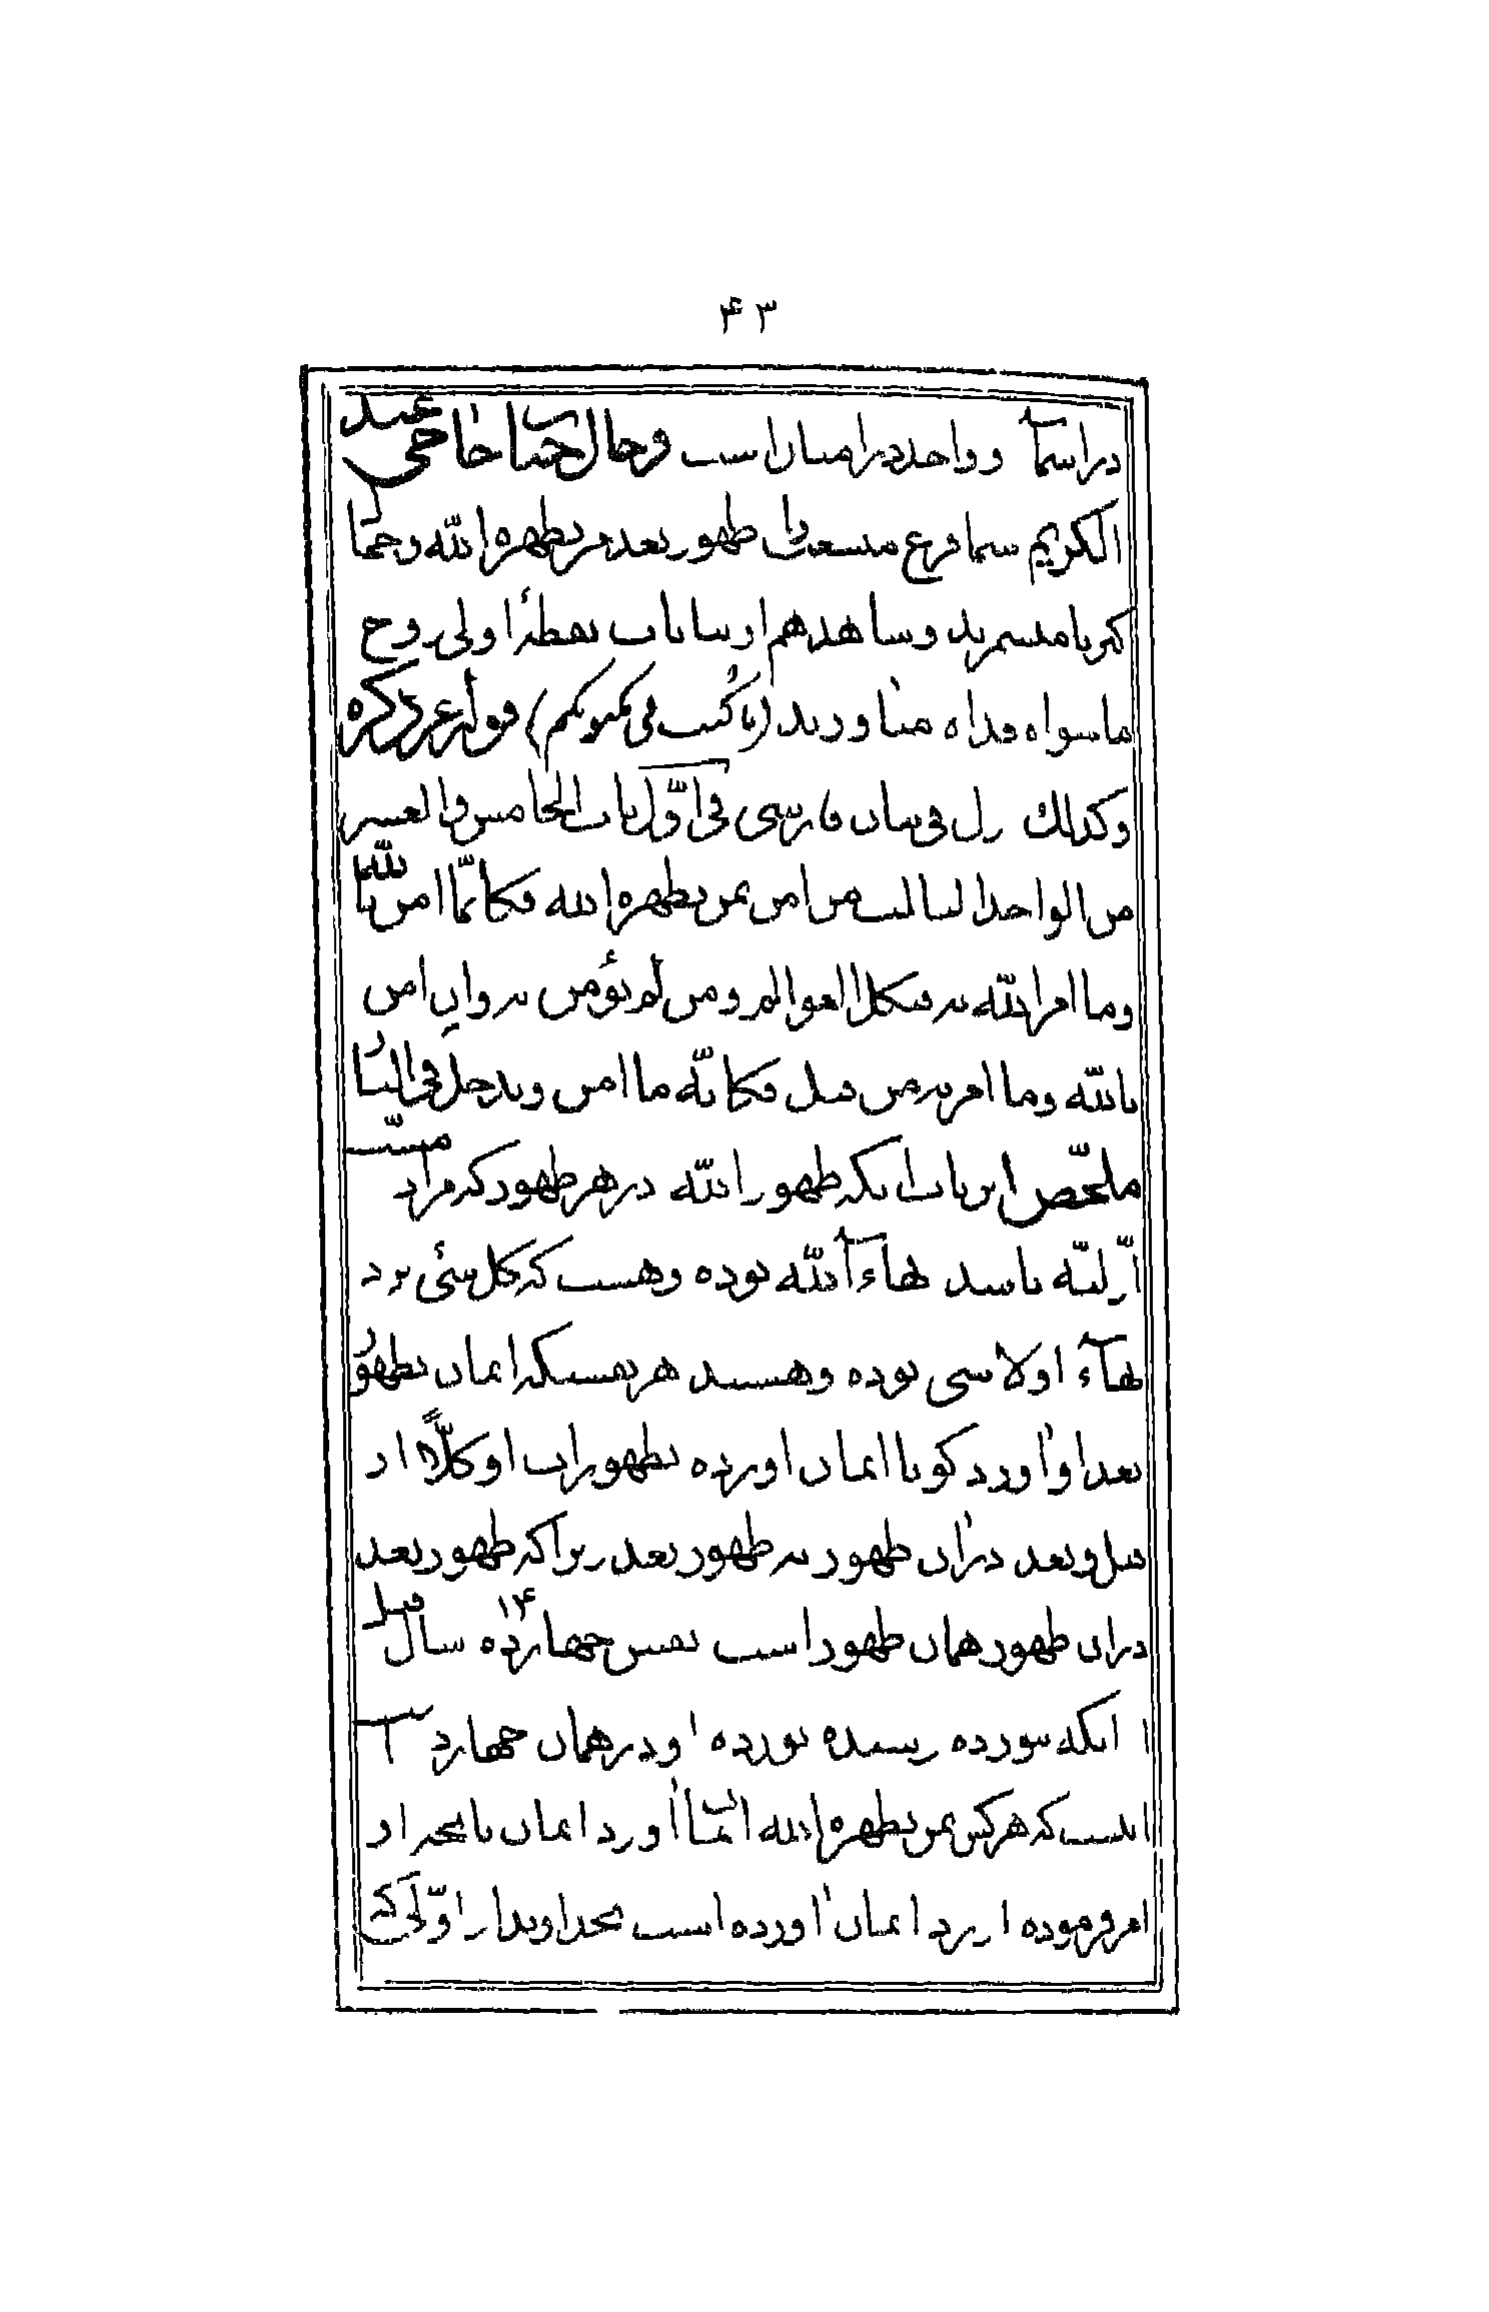 ۴۳
در اسماء و واحد در امثال است و حال جناب حاجی عبد
الکریم شما فرع ظهور بعد من یظهره الله و جمال
کبریا میشمرید و شاهد هم از بیانات نقطهٔ اولی روح
ما سواه فداه میآورید (ما کتب فی مکتوبکم) قوله عز ذکره
وکذلک نزل فی بیان فارسی فی اوّل باب الخامس والعشر
من الواحد الثالث من امن بمن یظهره الله فکانّما امن بالله
وما امر الله به فی کل العوالم ومن لم یؤمن به وان امن
بالله وما امر به من قبل فکانّه ما امن ویدخل فی النار
ملخّص این باب آنکه ظهور الله در هر ظهور که مراد مشیّت
اوّلیّه باشد بهاء الله بوده و هست که کل شیٔ نزد
بهاء او لا شیٔ بوده و هستند هر نفسیکه ایمان بظهور
بعد او آورد گویا ایمان آورده بظهورات او کلّاً از
قبل و بعد در آن ظهور نه ظهور بعد زیرا که ظهور بعد
در آن ظهور همان ظهور است نفس چهارده ۱۴ سال قبل
اینکه نبوده رسیده بوده او در همان چهارده
اینست که هرکس بمن یظهره الله ایمان آورد ایمان بآنچه از
امر فرموده از یزد ایمان آورده است بخداوند از اوّلی که